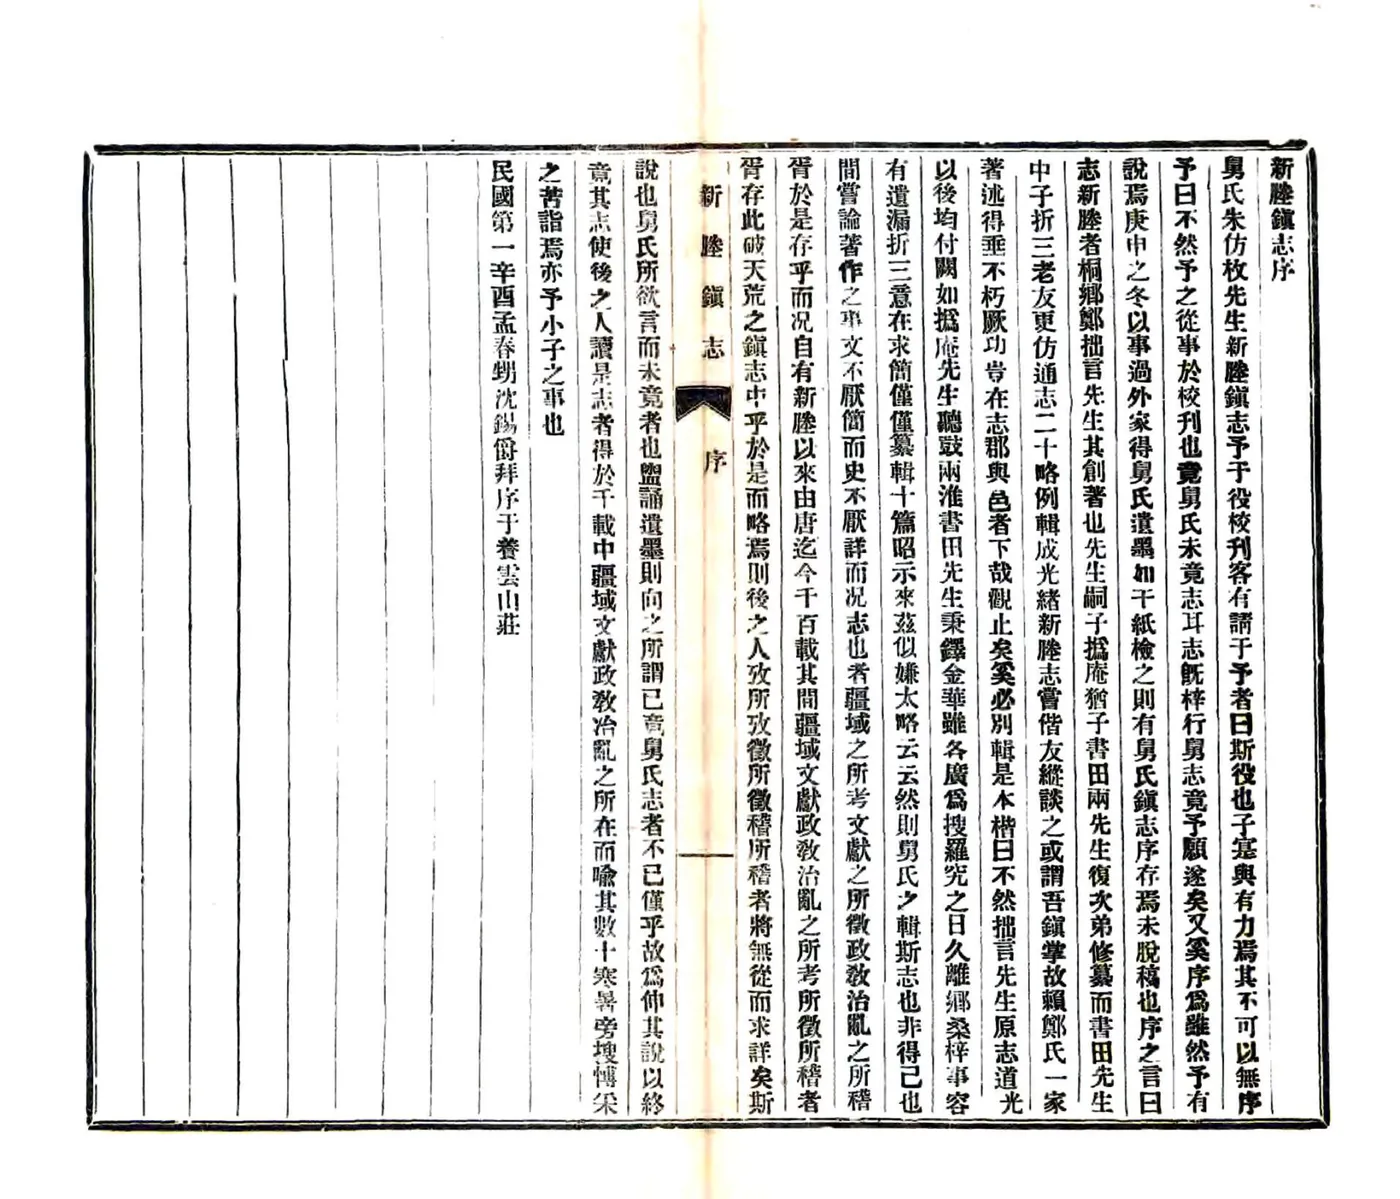 新塍鎭志序
舅氏朱仿枚先生新塍鎭志予于役校刋客有請于予者曰斯役也子寔與有力焉其不可以無序
予曰不然予之從事於校刋也竟舅氏未竟志耳志旣梓行舅志竟予願遂矣又奚序爲雖然予有
說焉庚申之冬以事過外家得舅氏遺墨如干紙檢之則有舅氏鎭志序存焉未脫稿也序之言曰
志新塍者桐鄕鄭拙言先生其創著也先生嗣子撝庵猶子書田兩先生復次弟修纂而書田先生
中子折三老友更仿通志二十略例輯成光緒新塍志嘗偕友縱談之或謂吾鎭掌故賴鄭氏一家
著述得垂不朽厥功豈在志郡與邑者下哉觀止矣奚必別輯是本楷曰不然拙言先生原志道光
以後均付闕如撝庵先生聽鼓兩淮書田先生秉鐸金華雖各廣爲搜羅究之日久離鄕桑梓事容
有遺漏折三意在求簡僅僅纂輯十篇昭示來茲似嫌太略云云然則舅氏之輯斯志也非得已也
間嘗論著作之事文不厭簡而史不厭詳而况志也者疆域之所考文獻之所徵政敎治亂之所稽
胥於是存乎而况自有新塍以來由唐迄今千百載其間疆域文獻政敎治亂之所考所徵所稽者
胥存此破天荒之鎭志中乎於是而略焉則後之人攷所攷徵所徵稽所稽者將無從而求詳矣斯
新塍鎭志
序
說也舅氏所欲言而未竟者也盥誦遺墨則向之所謂已竟舅氏志者不已僅乎故爲伸其說以終
竟其志使後之人讀是志者得於千載中疆域文獻政敎治亂之所在而喻其數十寒暑旁搜博采
之苦詣焉亦予小子之事也
民國第一辛酉孟春甥沈錫爵拜序于養雲山莊